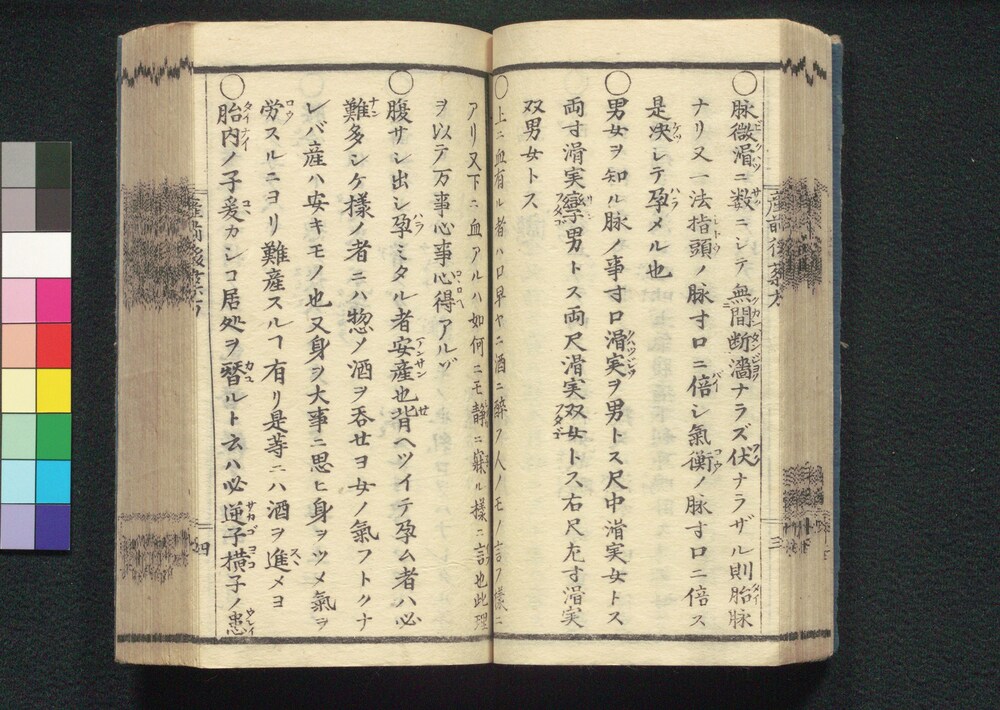 ○脉微滑ニ数ニシテ無間断濇ナラズ伏ナラザル則胎脉
ナリ又一法指頭ノ脉寸口ニ倍シ氣衡ノ脉寸口ニ倍ス
是決シテ孕メル也
○男女ヲ知ル脉ノ事寸口滑実ヲ男トス尺中滑実女トス
両寸滑実孿男トス両尺滑実双女トス右尺左寸滑実
双男女トス
○上ニ血有ル者ハ口早ヤニ酒ニ酔フ人ノモノ言フ様ニ
アリ又下ニ血アルハ如何ニモ静ニ寐ル様ニ言也此理
ヲ以テ万事心事心得アルヅ
○腹サシ出シ孕ミタル者安産也背ヘツイテ孕ム者ハ必
難多シケ様ノ者ニハ惣〆酒ヲ呑セヨ女ノ氣フトクナ
レバ産ハ安キモノ也又身ヲ大事ニ思ヒ身ヲツメ氣ヲ
労スルニヨリ難産スルヿ有リ是等ニハ酒ヲ進メヨ
○胎内ノ子爰カシコ居処ヲ替ルト云ハ必逆子横子ノ患
産前後
三
四